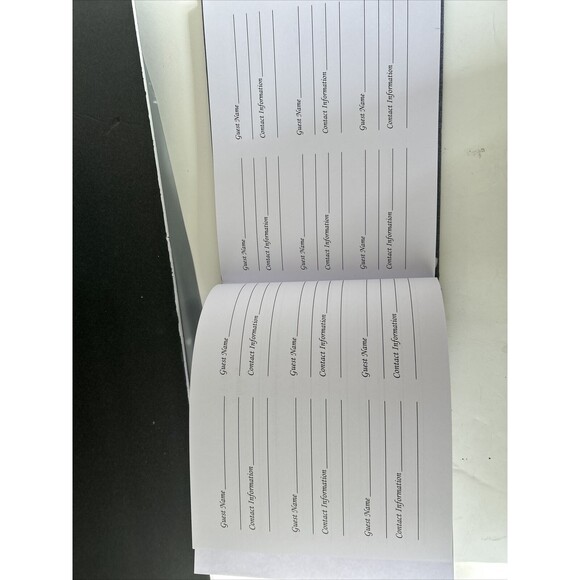 Guest Name
Contact Information
Guest Name
Contact Information
Guest Name
Contact Information
Guest Name
Contact Information
Guest Name
Contact Information
Guest Name
Contact Information
Guest Name
Contact Information
Guest Name
Contact Information
Guest Name
Contact Information
Guest Name
Contact Information
Guest Name
Contact Information
Guest Name
Contact Information